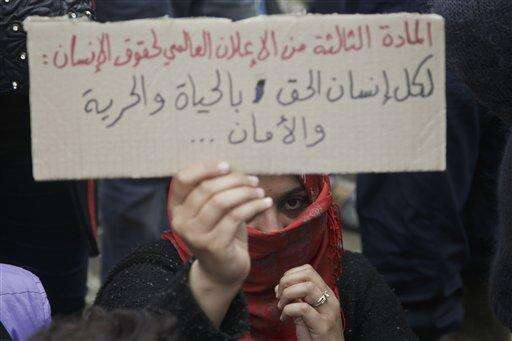 المادة الثالثة من الإعلان العالمي لحقوق الإنسان :
لكل إنسان الحق بالحياة والحرية
والأمان ...